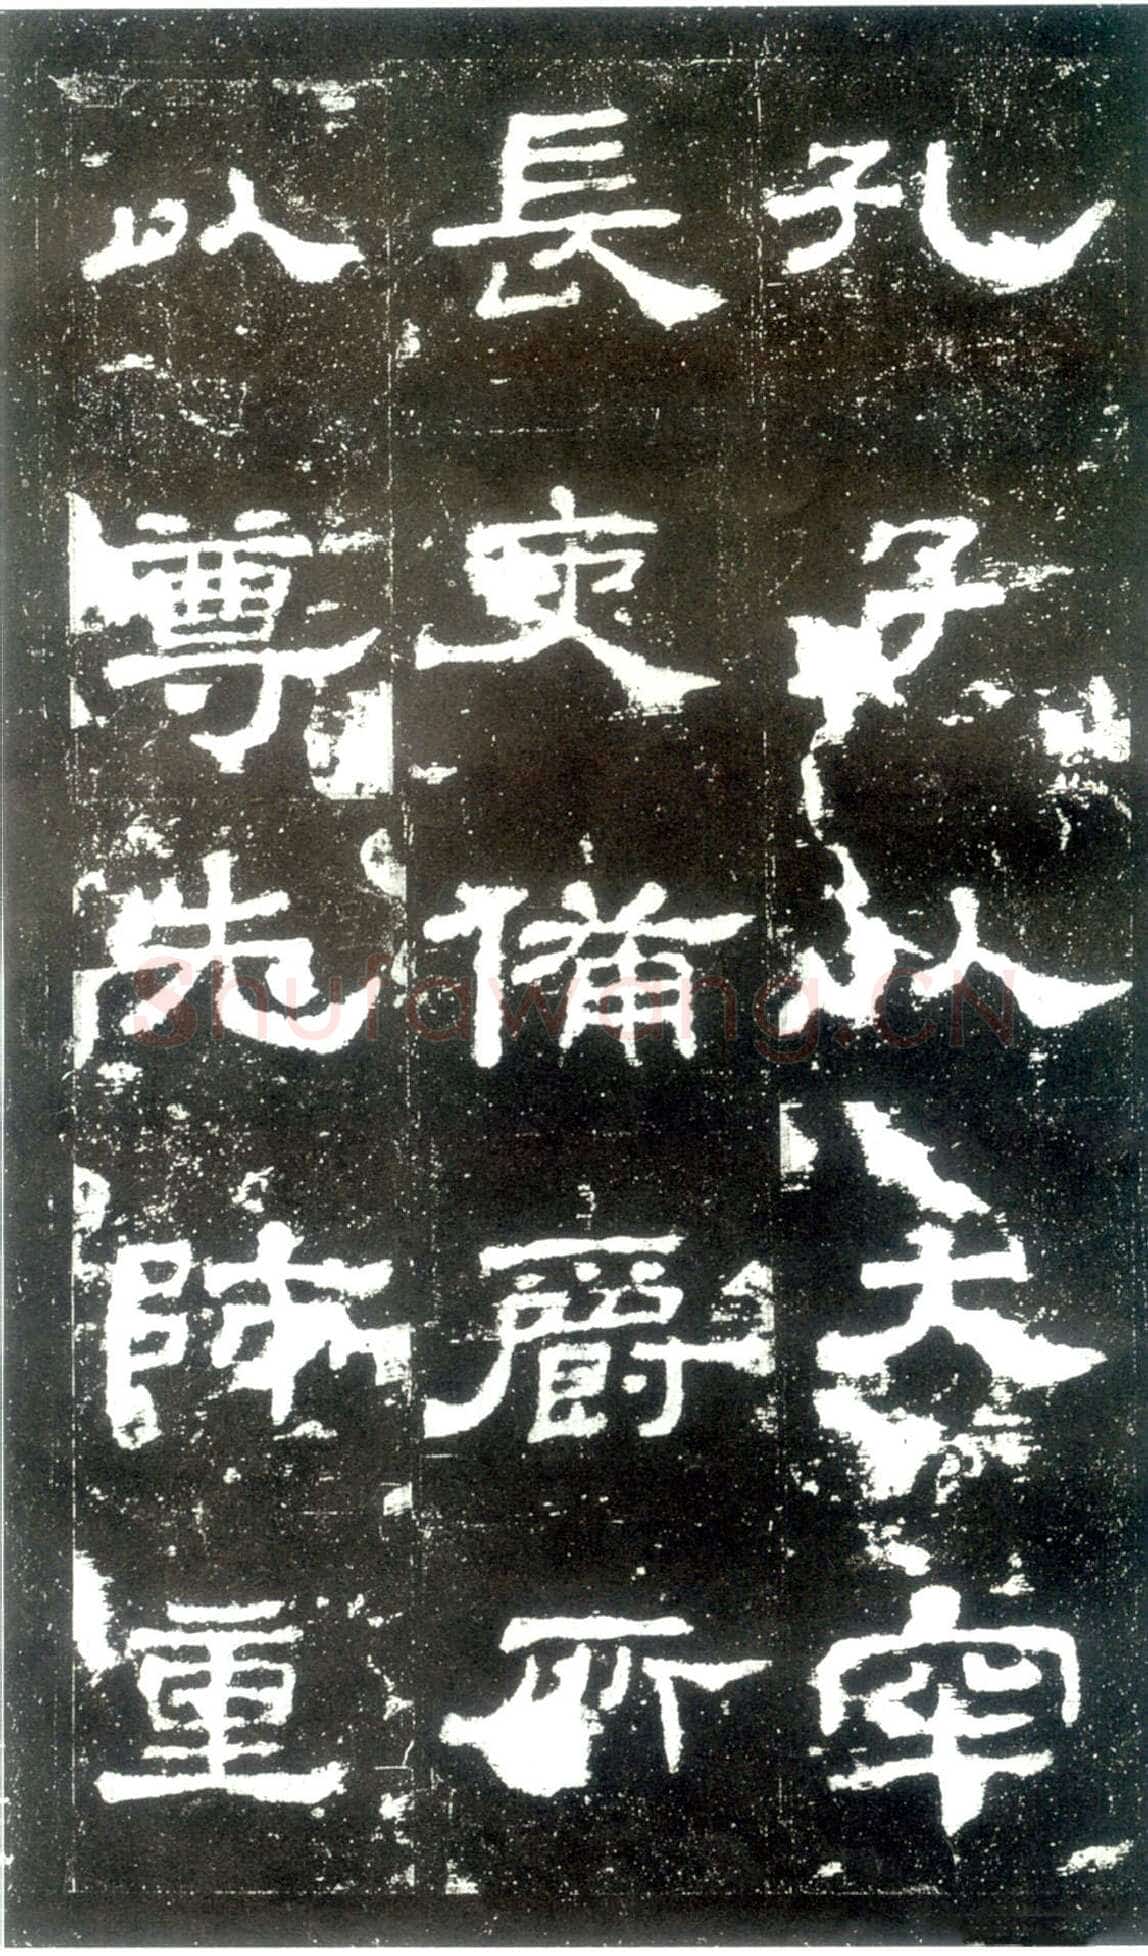 孔子以大牢
長吏備爵所
以尊先師重
Shufawang.CN